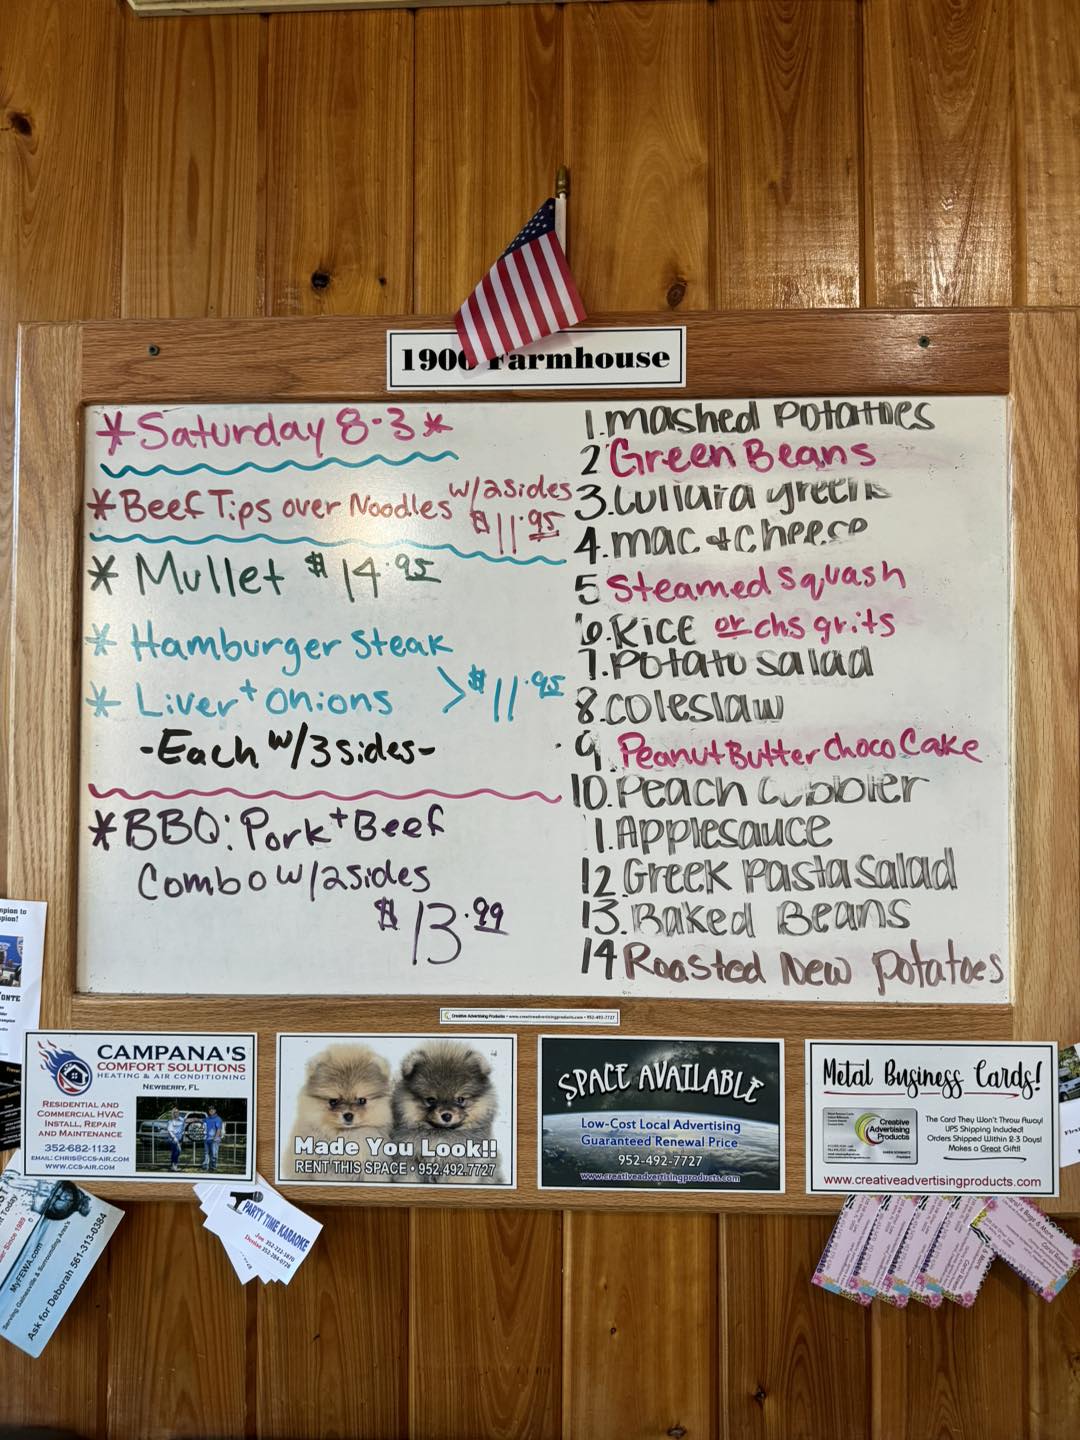 1906 Farmhouse
*Saturday 8-3*
*Beef Tips over Noodles w/2sides
$11.95
* Mullet $14.95
* Hamburger steak
* Liver + onions >$11.95
-Each w/3 sides-
*BBQ: Pork + Beef
Combo w/2sides
$13.99
1. mashed Potatoes
2 Green Beans
3. Collard greens
4. mac + cheese
5 Steamed squash
6. Rice or chs grits
7. Potato salad
8. coleslaw
9. Peanut Butter choco Cake
10. Peach Cobbler
1. Applesauce
12 Greek Pasta Salad
13. Baked Beans
14 Roasted New potatoes
Creative Advertising Products • www.creativeadvertisingproducts.com • 952-492-7727
CAMPANA'S
COMFORT SOLUTIONS
HEATING & AIR CONDITIONING
NEWBERRY, FL
RESIDENTIAL AND
COMMERCIAL HVAC
INSTALL, REPAIR
AND MAINTENANCE
352-682-1132
EMAIL: CHRIS@CCS-AIR.COM
WWW.CCS-AIR.COM
Made You Look!!
RENT THIS SPACE • 952.492.7727
SPACE AVAILABLE
Low-Cost Local Advertising
Guaranteed Renewal Price
952-492-7727
www.creativeadvertisingproducts.com
Metal Business Cards!
Creative
Advertising
Products
The Card They Won't Throw Away!
UPS Shipping Included!
Orders Shipped Within 2-3 Days!
Makes a Great Gift!
www.creativeadvertisingproducts.com
PARTY TIME KARAOKE
MyFEWA.com
Serving Gainesville & Surrounding Area's
Ask for Deborah 561-313-0384